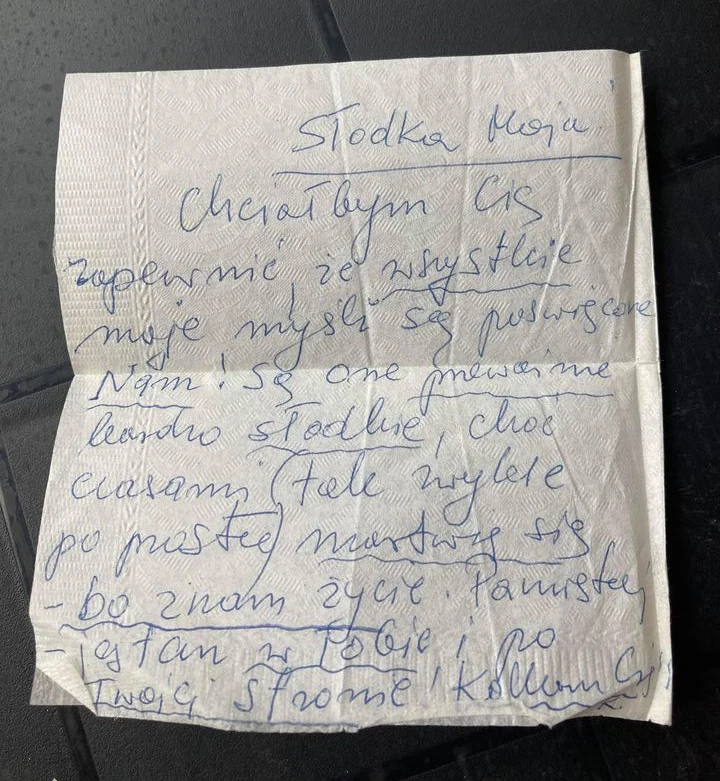 Słodka Moja
Chciałbym Cię
zapewnić, że wszystkie
moje myśli są poświęcone
Nam! Są one przeważnie
bardzo słodkie, choć
czasami (tak zwykle
po prostu) martwię się
- bo znam życie. Pamiętaj
- jestem w Tobie i po
Twojej stronie! Kocham Cię